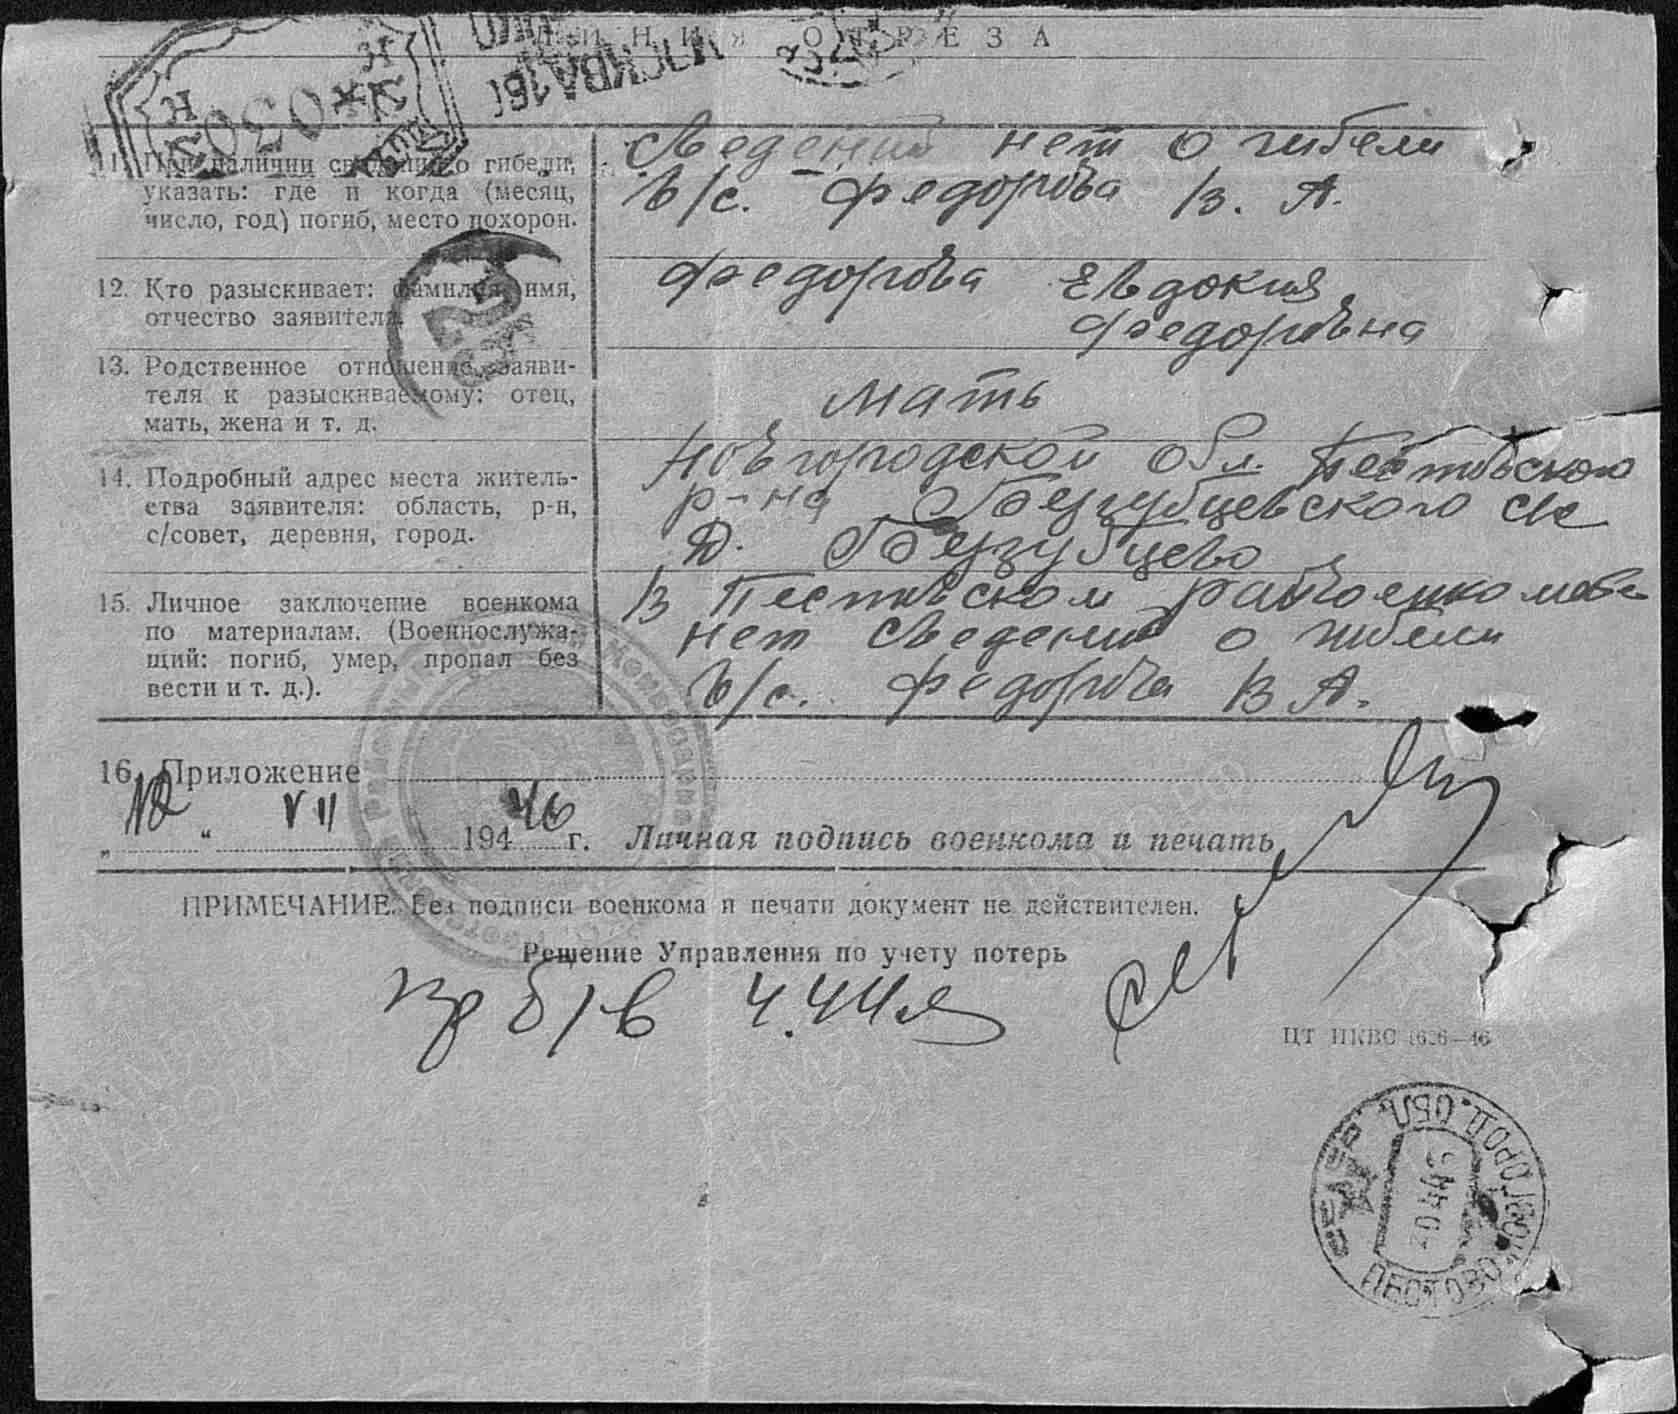 ЛИНИЯ ОТРЕЗА
МОСКВА
11. При наличии сведений о гибели,
указать: где и когда (месяц,
число, год) погиб, место похорон.
Сведений нет о гибели
в/с. Федорова В. А.
12. Кто разыскивает: фамилия, имя,
отчество заявителя.
Федорова Евдокия
Федоровна
13. Родственное отношение заяви-
теля к разыскиваемому: отец,
мать, жена и т. д.
мать
14. Подробный адрес места житель-
ства заявителя: область, р-н,
с/совет, деревня, город.
Новгородской обл. Пестовского
р-на Беззубцевского с/с
Д. Беззубцево
15. Личное заключение военкома
по материалам. (Военнослужа-
щий: погиб, умер, пропал без
вести и т. д.).
В Пестовском райвоенкомате
нет сведений о гибели
в/с. Федорова В А.
16. Приложение
„ 12 “ VII 1946 г. Личная подпись военкома и печать
ПРИМЕЧАНИЕ. Без подписи военкома и печати документ не действителен.
Решение Управления по учету потерь
пр б/в 4.44
ЦТ НКВС 1626—46
ПЕСТОВО НОВГОРОД. ОБЛ.